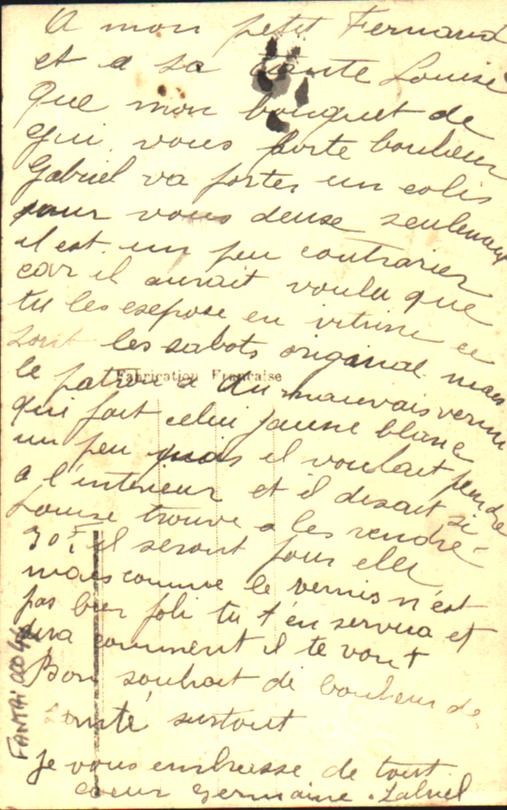 A mon petit Fernand
et a sa tante Louise
que mon bouquet de
gui vous porte bonheur
Gabriel va porter un colis
pour vous deuse seulement
il est un peu contrarier
car il aurait voulu que
tu les esepose en vitrine ce
sont les sabots original mais
le patron a du mauvais vernis
Fabrication Française
qui fait celui jaune blanc
un peu mais il voulait peindre
a l'interieur et il disait si
Louise trouve a les vendre
30F il seront pour elle
mais comme le vernis n'est
pas bien joli tu t'en servira et
dira comment il te vont
Bon souhait de bonheur de
santé surtout
je vous embrasse de tout
coeur Germaine. Gabriel
FANTAI 0044